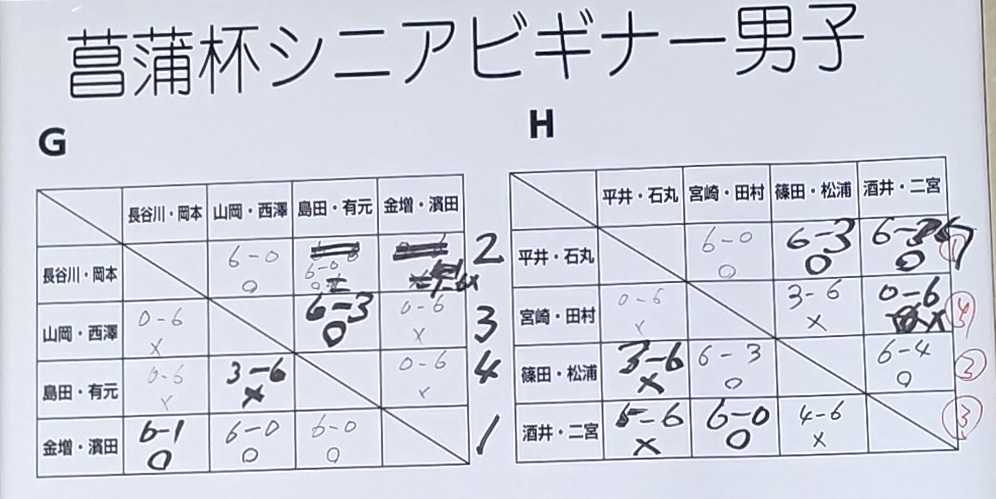 菖蒲杯シニアビギナー男子
G
長谷川・岡本 山岡・西澤 島田・有元 金増・濱田
長谷川・岡本 6-0 6-0 2
○ ○
山岡・西澤 0-6 6-3 0-6 3
× ○ ×
島田・有元 0-6 3-6 0-6 4
× × ×
金増・濱田 6-1 6-0 6-0 1
○ ○ ○
H
平井・石丸 宮崎・田村 篠田・松浦 酒井・二宮
平井・石丸 6-0 6-3 6-5 1
○ ○ ○
宮崎・田村 0-6 3-6 0-6 ④
× × ×
篠田・松浦 3-6 6-3 6-4 ②
× ○ ○
酒井・二宮 5-6 6-0 4-6 ③
× ○ ×